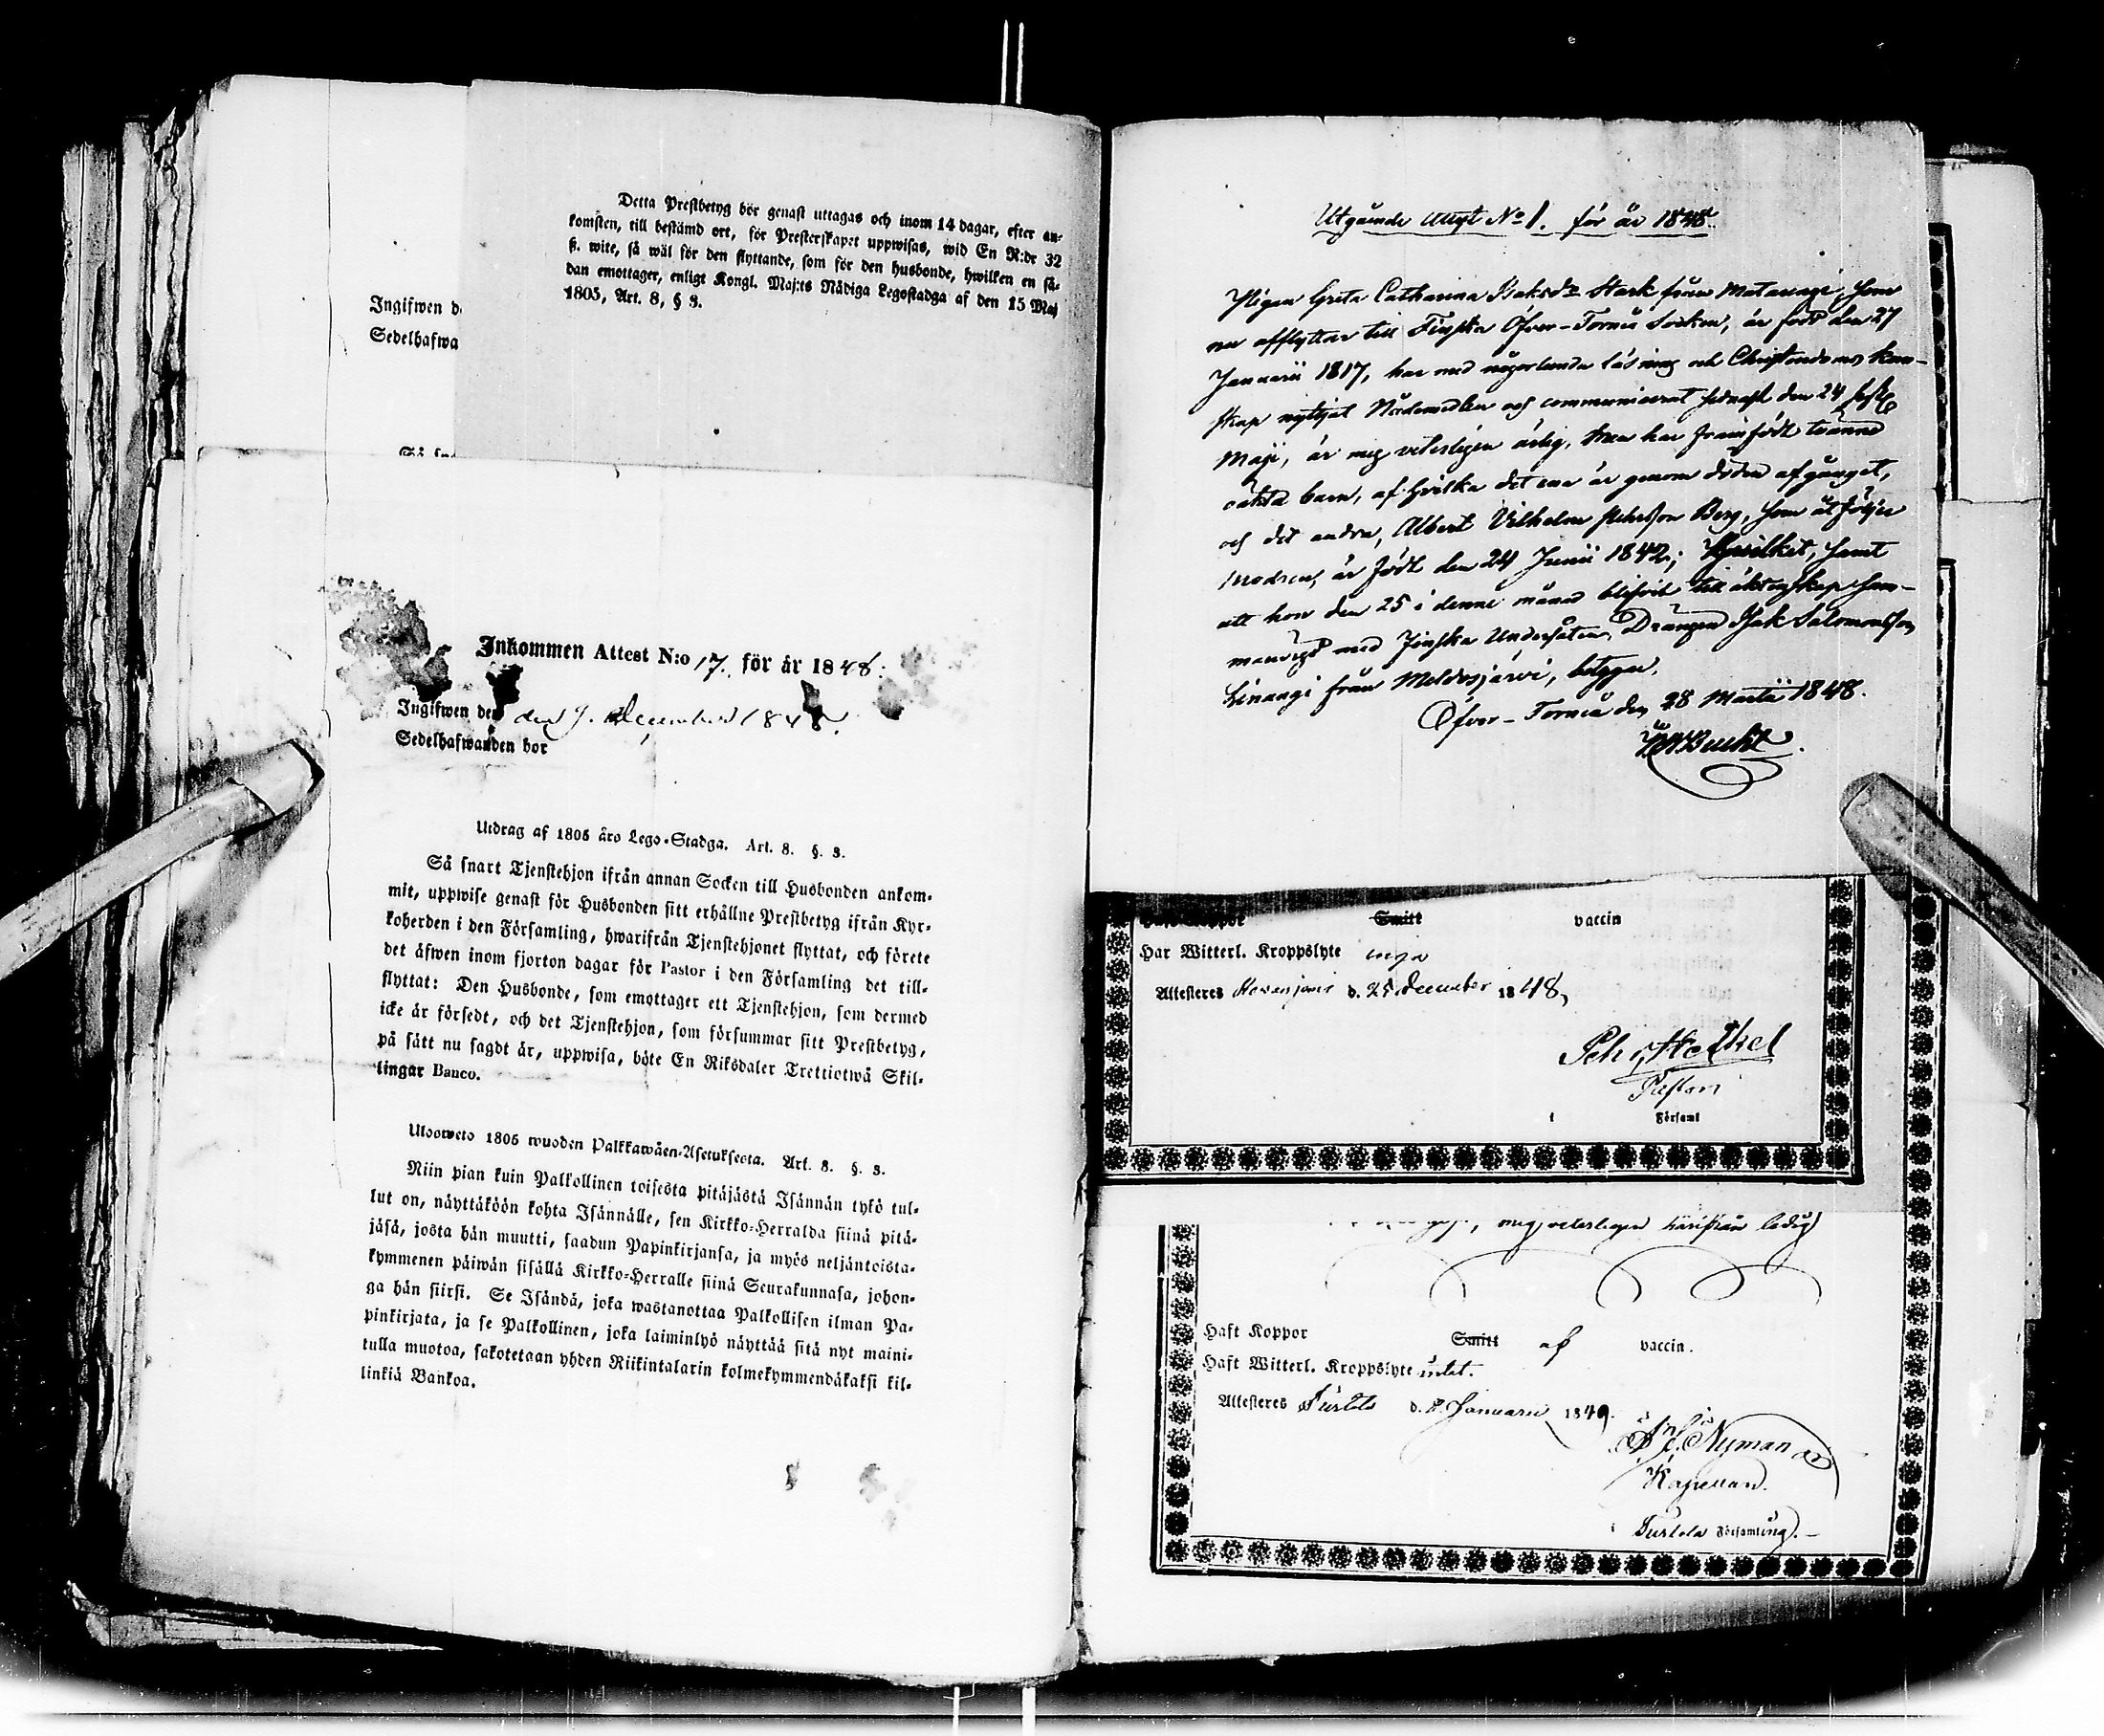 Detta Prestbetyg bör genast uttagas och inom 14 dagar, efter an-
komsten, till bestämd ort, för Presterskapet uppwisas, wid En R:dr 32
ß. wite, så wäl för den flyttande, som för den husbonde, hwilken en så-
dan emottager, enligt Kongl. Maj:ts Nådiga Legostadga af den 15 Maj
1805, Art. 8, § 3.
Ingifwen d
Sedelhafwa
Inkommen Attest N:o 17. för år 1848.
Ingifwen den den 9. December 1848.
Sedelhafwanden bor
Utdrag af 1805 års Lego-Stadga. Art. 8. §. 3.
Så snart Tjenstehjon ifrån annan Socken till Husbonden ankom-
mit, uppwise genast för Husbonden sitt erhållne Prestbetyg ifrån Kyr-
koherden i den Församling, hwarifrån Tjenstehjonet flyttat, och förete
det äfwen inom fjorton dagar för Pastor i den Församling det till-
flyttat: Den Husbonde, som emottager ett Tjenstehjon, som dermed
icke är försedt, och det Tjenstehjon, som försummar sitt Prestbetyg,
på sätt nu sagdt är, uppwisa, böte En Riksdaler Trettiotwå Skil-
lingar Banco.
Ulosweto 1805 wuoden Palkkawäen-Asetuksesta. Art. 8. §. 3.
Niin pian kuin Palkollinen toisesta pitäjästä Isännän tykö tul-
lut on, näyttäköön kohta Isännälle, sen Kirkko-Herralda siinä pitä-
jäsä, josta hän muutti, saadun Papinkirjansa, ja myös neljäntoista-
kymmenen päiwän sisällä Kirkko-Herralle siinä Seurakunnasa, johon-
ga hän siirsi. Se Isändä, joka wastanottaa Palkollisen ilman Pa-
pinkirjata, ja se Palkollinen, joka laiminlyö näyttää sitä nyt maini-
tulla muotoa, sakotetaan yhden Riikintalarin kolmekymmendäkaksi kil-
linkiä Bankoa.
Utgående attest No 1. för år 1848.
Pigan Greta Catharina Isaksdr Stark från Matarengi, som
nu afflyttar till Finska Öfver-Torneå Socken, är född den 27
Januarii 1817, har med någorlunda läsning och Christendoms kun-
skap nyttjat Nådemedlen och communicerat sednast den 24 sistl.
Maji, är mig veterligen ärlig, men har framfödt tvänne
oäkta barn, af hvilka det ena är genom döden afgånget,
och det andra, Albert Vilhelm Pehrsson Berg, som åtföljer
modren, är födt den 24 Junii 1842; hvilket, samt
att hon den 25 i denne månad blifvit till äktenskap sam-
manvigd med Finska Undersåten, Drängen Isak Salomonsson
från Meldosjärvi, betygar.
Öfver-Torneå den 28 Martii 1848.
Bucht
Smitt vaccin
Har Witterl. Kroppslyte inga
Attesteres d. 25 December 1848,
Pehr Heikel
Pastor
i Församl
mig veterligen härifrån ledig
Haft Koppor Smitt af vaccin.
Haft Witterl. Kroppslyte intet.
Attesteres Turtola d. 8 Januarii 1849.
Nyman
Kapellan.
i Turtola Församling.